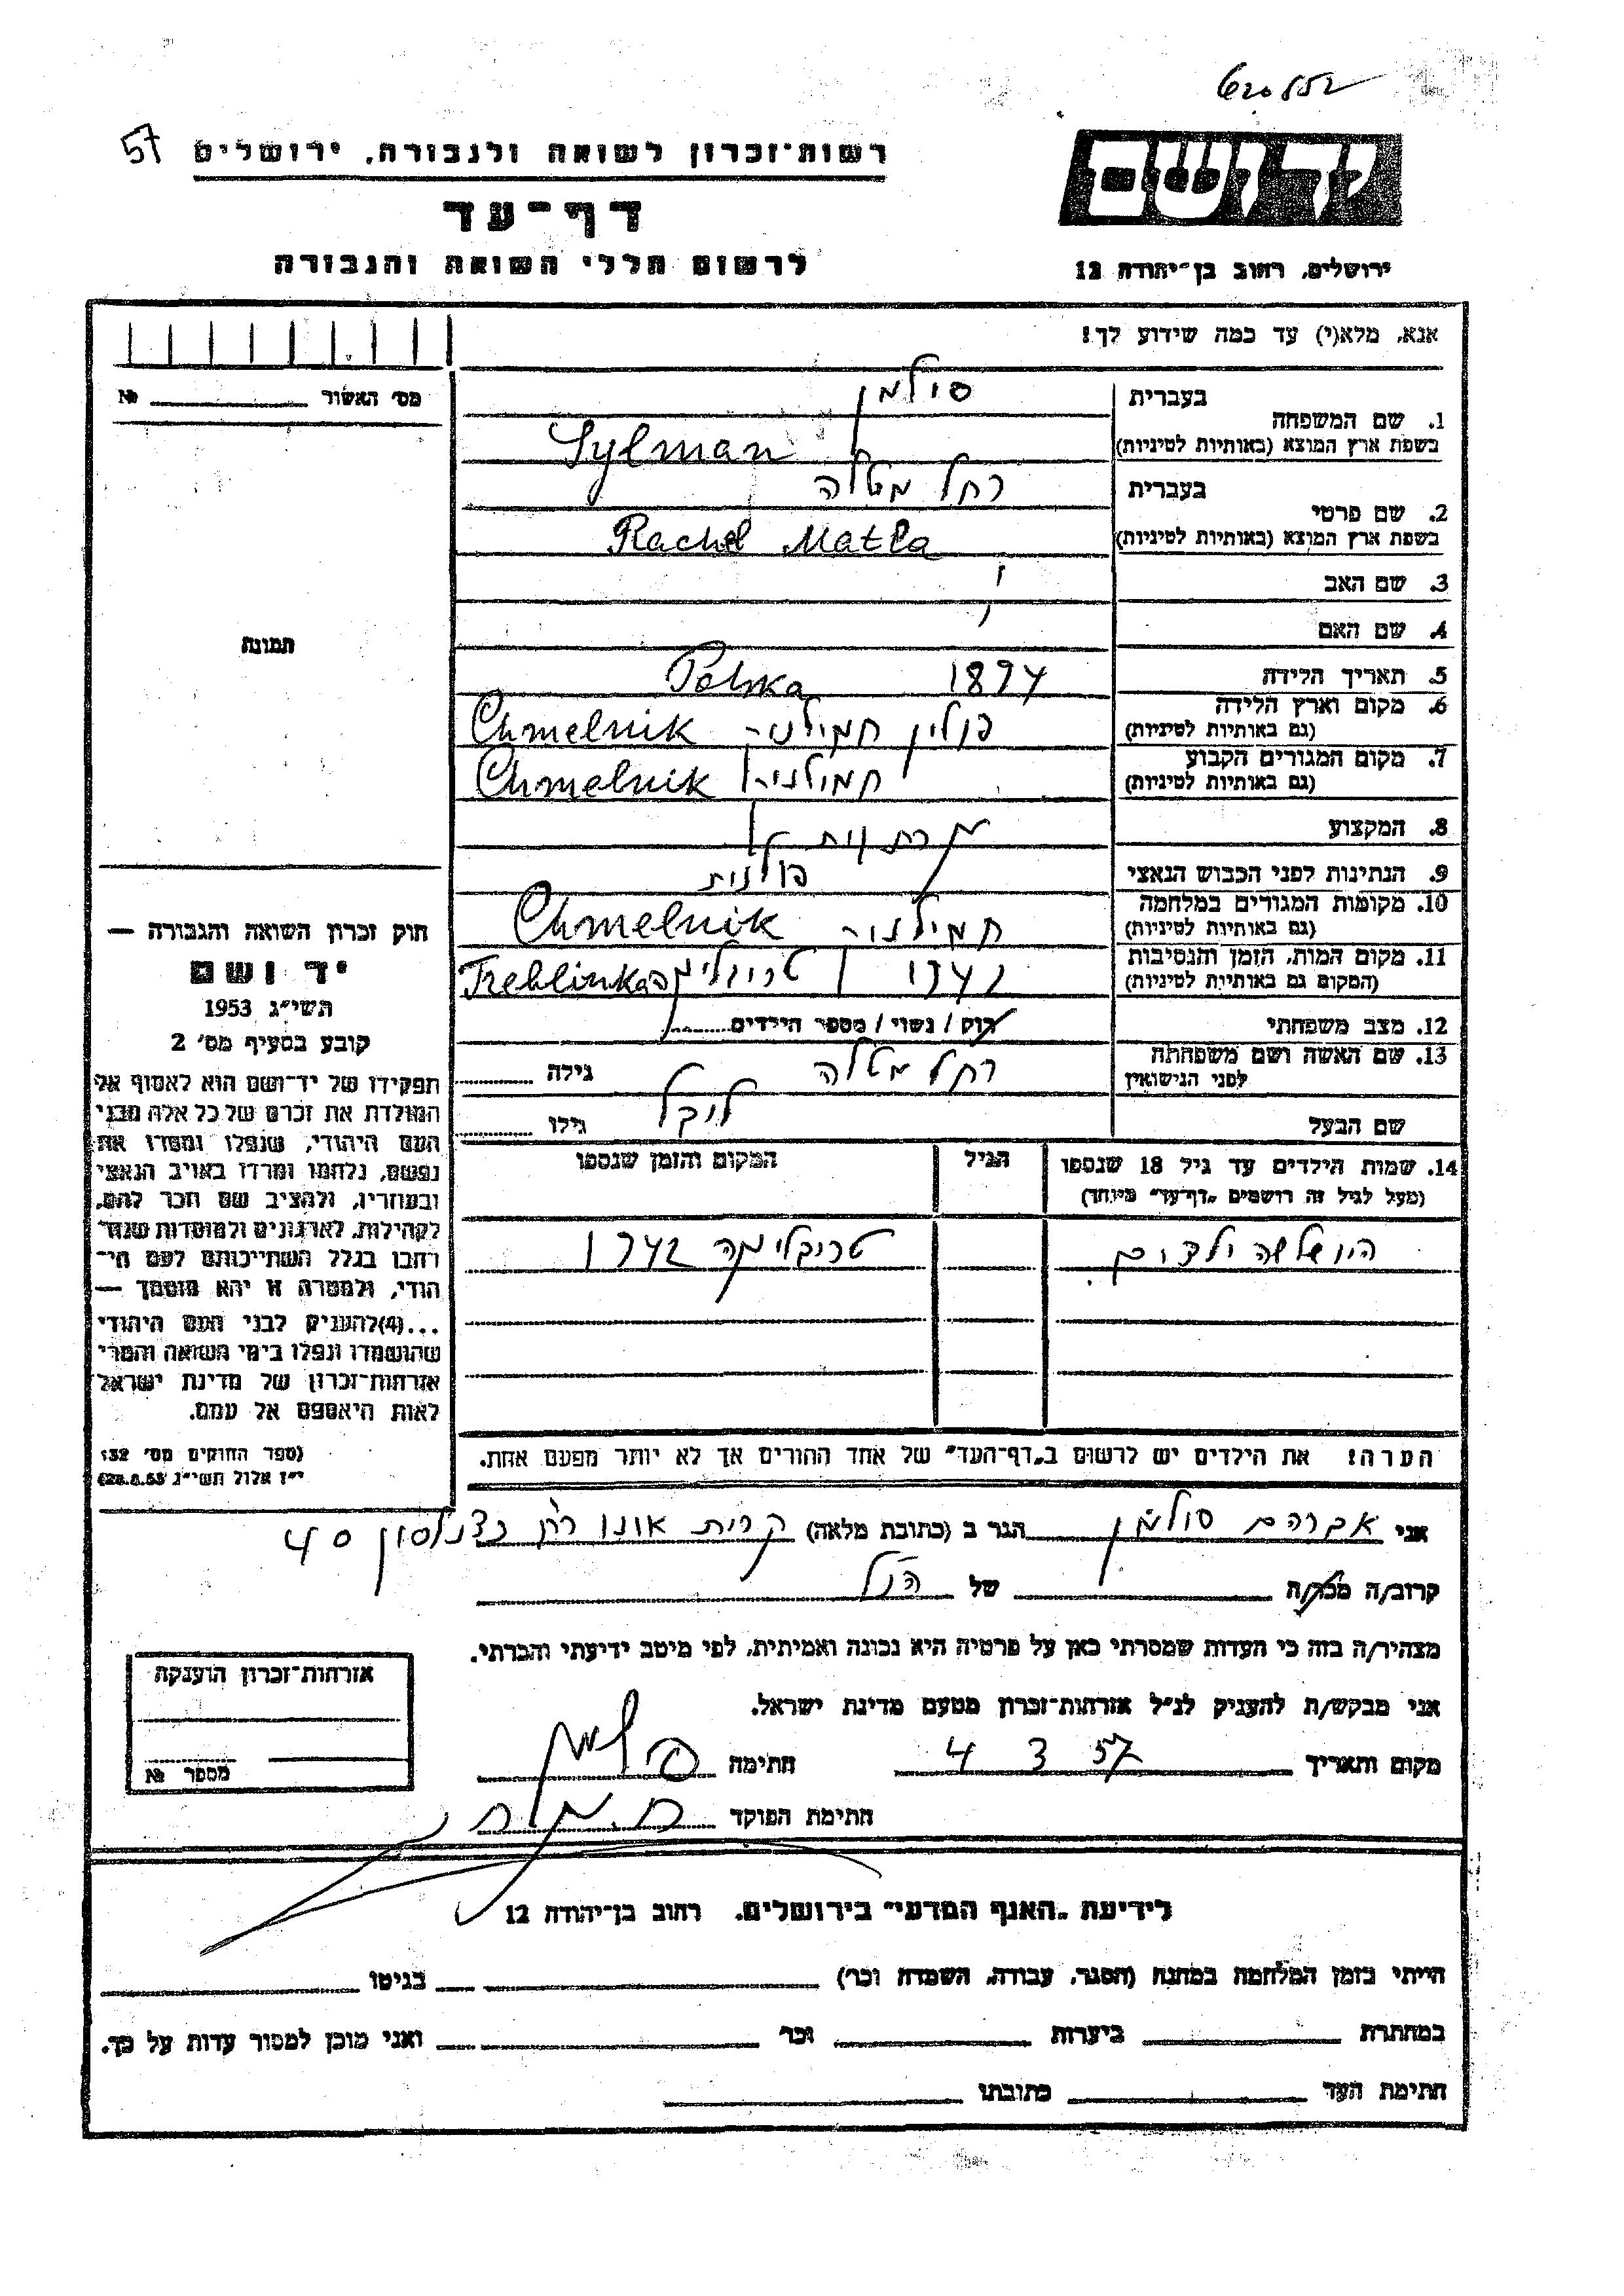 57
רשות־זכרון לשואה ולגבורה, ירושלים
יד ושם
דף־עד
לרשום חללי השואה והגבורה
ירושלים, רחוב בן־יהודה 12
אנא, מלא(י) עד כמה שידוע לך!
מס׳ האשור № 
1. שם המשפחה בעברית סולמן
בשפת ארץ המוצא (באותיות לטיניות) Sylman
2. שם פרטי בעברית רחל מטלה
בשפת ארץ המוצא (באותיות לטיניות) Rachel Matla
3. שם האב
4. שם האם
תמונה
5. תאריך הלידה 1894 Polska
6. מקום וארץ הלידה פולין חמילניק Chmelnik
(גם באותיות לטיניות)
7. מקום המגורים הקבוע חמילניק Chmelnik
(גם באותיות לטיניות)
8. המקצוע
9. הנתינות לפני הכבוש הנאצי פולנית
10. מקומות המגורים במלחמה חמילניק Chmelnik
(גם באותיות לטיניות)
11. מקום המות, הזמן והנסיבות 1942 טרבלינקה Treblinka
(המקום גם באותיות לטיניות)
12. מצב משפחתי רוק / נשוי / מספר הילדים
13. שם האשה ושם משפחתה רחל מטלה גילה
לפני הנישואין
שם הבעל לייבל גילו
14. שמות הילדים עד גיל 18 שנספו הגיל המקום והזמן שנספו
(מעל לגיל זה רושמים „דף־עד" מיוחד)
היו שלשה ילדים טריבלינקה 1942
הערה! את הילדים יש לרשום ב„דף־העד" של אחד ההורים אך לא יותר מפעם אחת.
חוק זכרון השואה והגבורה —
יד ושם
תשי״ג 1953
קובע בסעיף מס׳ 2
תפקידו של יד־ושם הוא לאסוף אל
המולדת את זכרם של כל אלה מבני
העם היהודי, שנפלו ומסרו את
נפשם, נלחמו ומרדו באויב הנאצי
ובעוזריו, ולהציב שם וזכר להם,
לקהילות, לארגונים ולמוסדות שנח־
רבו בגלל השתייכותם לעם הי־
הודי, ולמטרה זו יהא מוסמך —
...(4)להעניק לבני העם היהודי
שהושמדו ונפלו בימי השואה והמרי
אזרחות־זכרון של מדינת ישראל
לאות היאספם אל עמם.
(ספר החוקים מס׳ 132,
י״ז אלול תשי״ג 28.8.53)
אני אברהם סולמן הגר ב (כתובת מלאה) קרית אונו רח׳ כצנלסון 40
קרוב/ה מכר/ה של הנ״ל
מצהיר/ה בזה כי העדות שמסרתי כאן על פרטיה היא נכונה ואמיתית, לפי מיטב ידיעתי והכרתי.
אני מבקש/ת להעניק לנ״ל אזרחות־זכרון מטעם מדינת ישראל.
מקום ותאריך 4 3 57 חתימה סולמן
חתימת הפוקד
אזרחות־זכרון הוענקה
מספר №
לידיעת „האגף המדעי" בירושלים, רחוב בן־יהודה 12
הייתי בזמן המלחמה במחנה (הסגר, עבודה, השמדה וכר) בגיטו
במחתרת ביערות וכר ואני מוכן למסור עדות על כך.
חתימת העד כתובתו